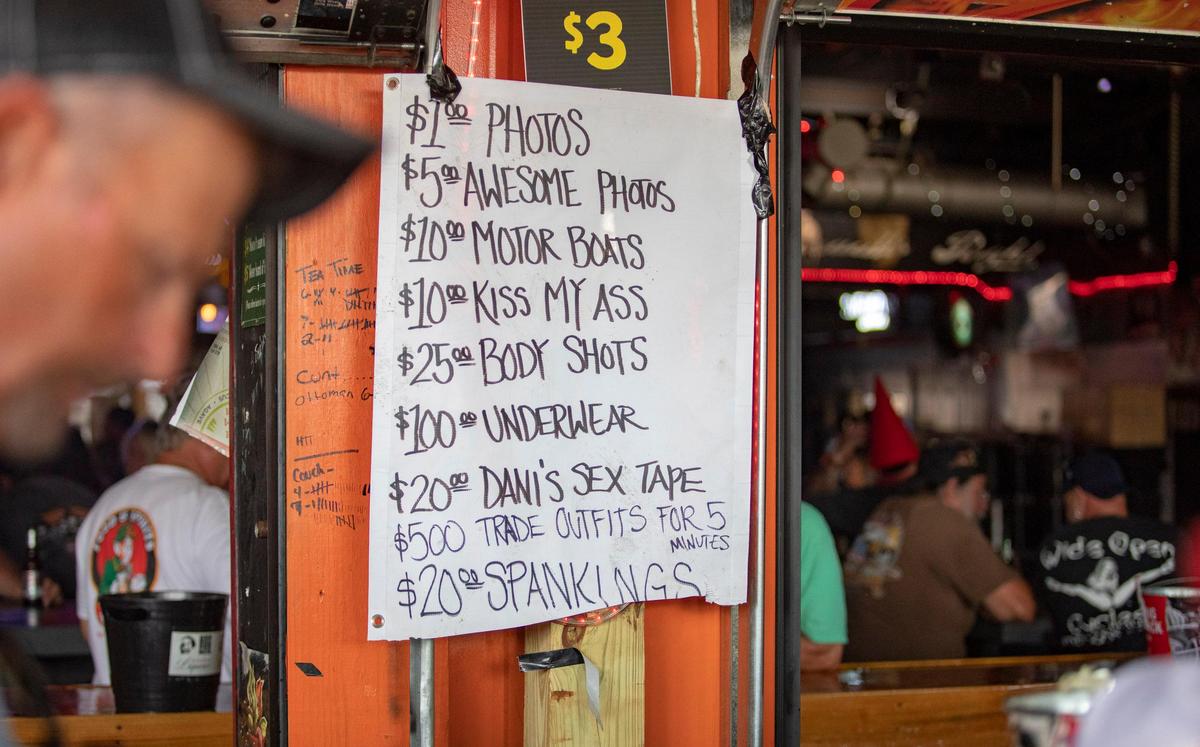 $3
$1.00 PHOTOS
$5.00 AWESOME PHOTOS
$10.00 MOTOR BOATS
$10.00 KISS MY ASS
$25.00 BODY SHOTS
$100.00 UNDERWEAR
$20.00 DANI'S SEX TAPE
$500 TRADE OUTFITS FOR 5
MINUTES
$20.00 SPANKINGS
TEA TIME
Couch-
Wide Open
Cycles